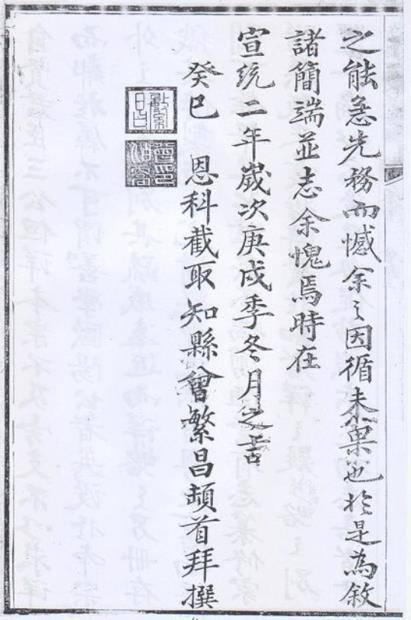 之能急先務而憾余之因循未果也於是為敘
諸簡端並志余愧焉時在
宣統二年歲次庚戌季冬月之吉
癸巳 恩科截取知縣曾繁昌頓首拜撰